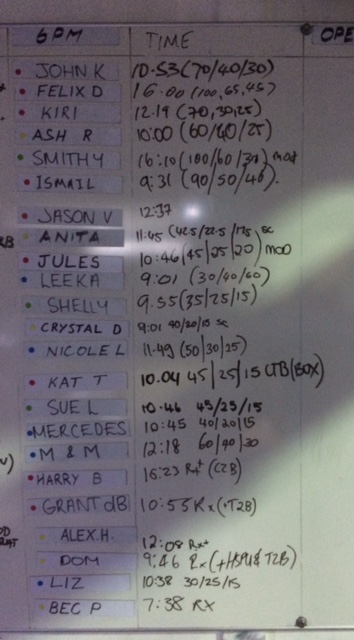 6PM TIME OPE
JOHN K 10.53 (70/40/30)
FELIX D 16.00 (100,65,45)
KIRI 12.19 (70,30,25)
ASH R 10:00 (60/40/25)
SMITHY 16:10 (100/60/30) mod
ISMAIL 9:31 (90/50/40).
JASON V 12:37
ANITA 11:45 (42.5/22.5/17.5) sc
JULES 10:46 (45/25/20) MOD
LEEKA 9:01 (30/40/60)
SHELLY 9.55 (35/25/15)
CRYSTAL D 9:01 40/20/15 sc
NICOLE L 11.49 (50/30/25)
KAT T 10.04 45/25/15 CTB (BOX)
SUE L 10.46 45/25/15
MERCEDES 10:45 40/20/15
M & M 12:18 60/40/30
HARRY B 16:23 Rx+ (C2B)
GRANT dB 10:55 Rx (T2B)
ALEX.H. 12:08 Rx+
DOM 9:46 Rx (+HSPU & T2B)
LIZ 10:38 30/25/15
BEC P 7:38 RX